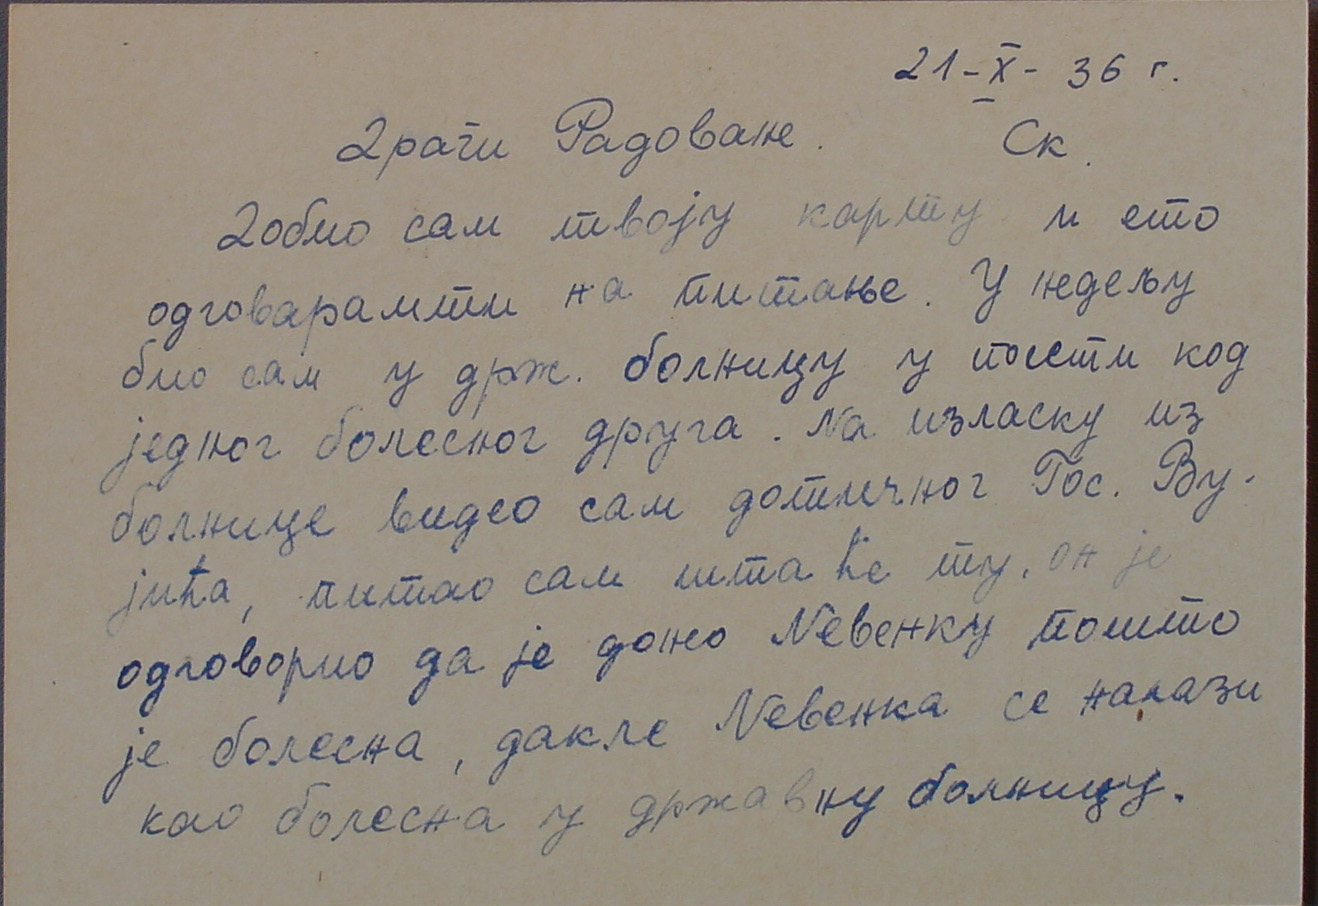 21-X- 36 г.
Драги Радоване. Ск.
Добио сам твоју карту и ето
одговарамти на питање. У недељу
био сам у држ. болницу у посети код
једног болесног друга. На изласку из
болнице видео сам дотичног Гос. Ву-
јића, питао сам шта ће ту, он је
одговорио да је дошо Невенку пошто
је болесна, дакле Невенка се налази
као болесна у државну болницу.